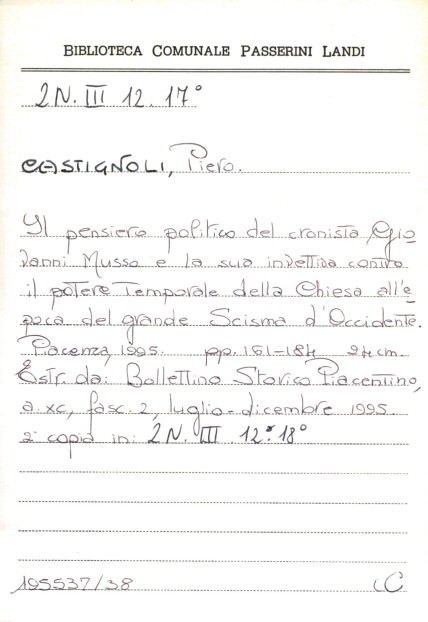 BIBLIOTECA COMUNALE PASSERINI LANDI
2N. III 12. 17°
CASTIGNOLI, Piero.
Il pensiero politico del cronista Gio
vanni Musso e la sua invettiva contro
il potere temporale della Chiesa all'e
poca del grande Scisma d'Occidente.
Piacenza, 1995. pp. 161-184 24 cm.
Estr. da: Bollettino Storico Piacentino,
a. xc, fasc. 2, luglio-dicembre 1995.
2ª copia in: 2N. III 12. 18°
195537/38
C